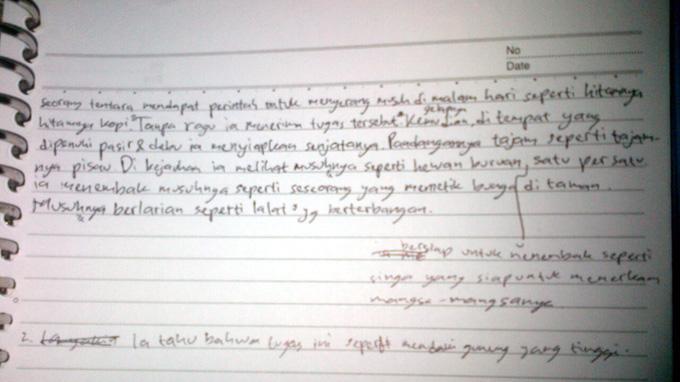 No
Date
seorang tentara mendapat perintah untuk menyerang musuh di malam hari seperti hitamnya
gelapnya
hitamnya kopi. Tanpa ragu ia menerima tugas tersebut. Kemudian, di tempat yang
dipenuhi pasir & debu ia menyiapkan senjatanya. Pandangannya tajam seperti tajam-
nya pisau. Di kejauhan ia melihat musuhnya seperti hewan buruan, satu per satu
ia menembak musuhnya seperti seseorang yang memetik bunga di taman.
Musuhnya berlarian seperti lalat² yg berterbangan.
bersiap untuk menembak seperti
singa yang siap untuk menerkam
mangsa-mangsanya
2. Ia tahu bahwa tugas ini seperti mendaki gunung yang tinggi.